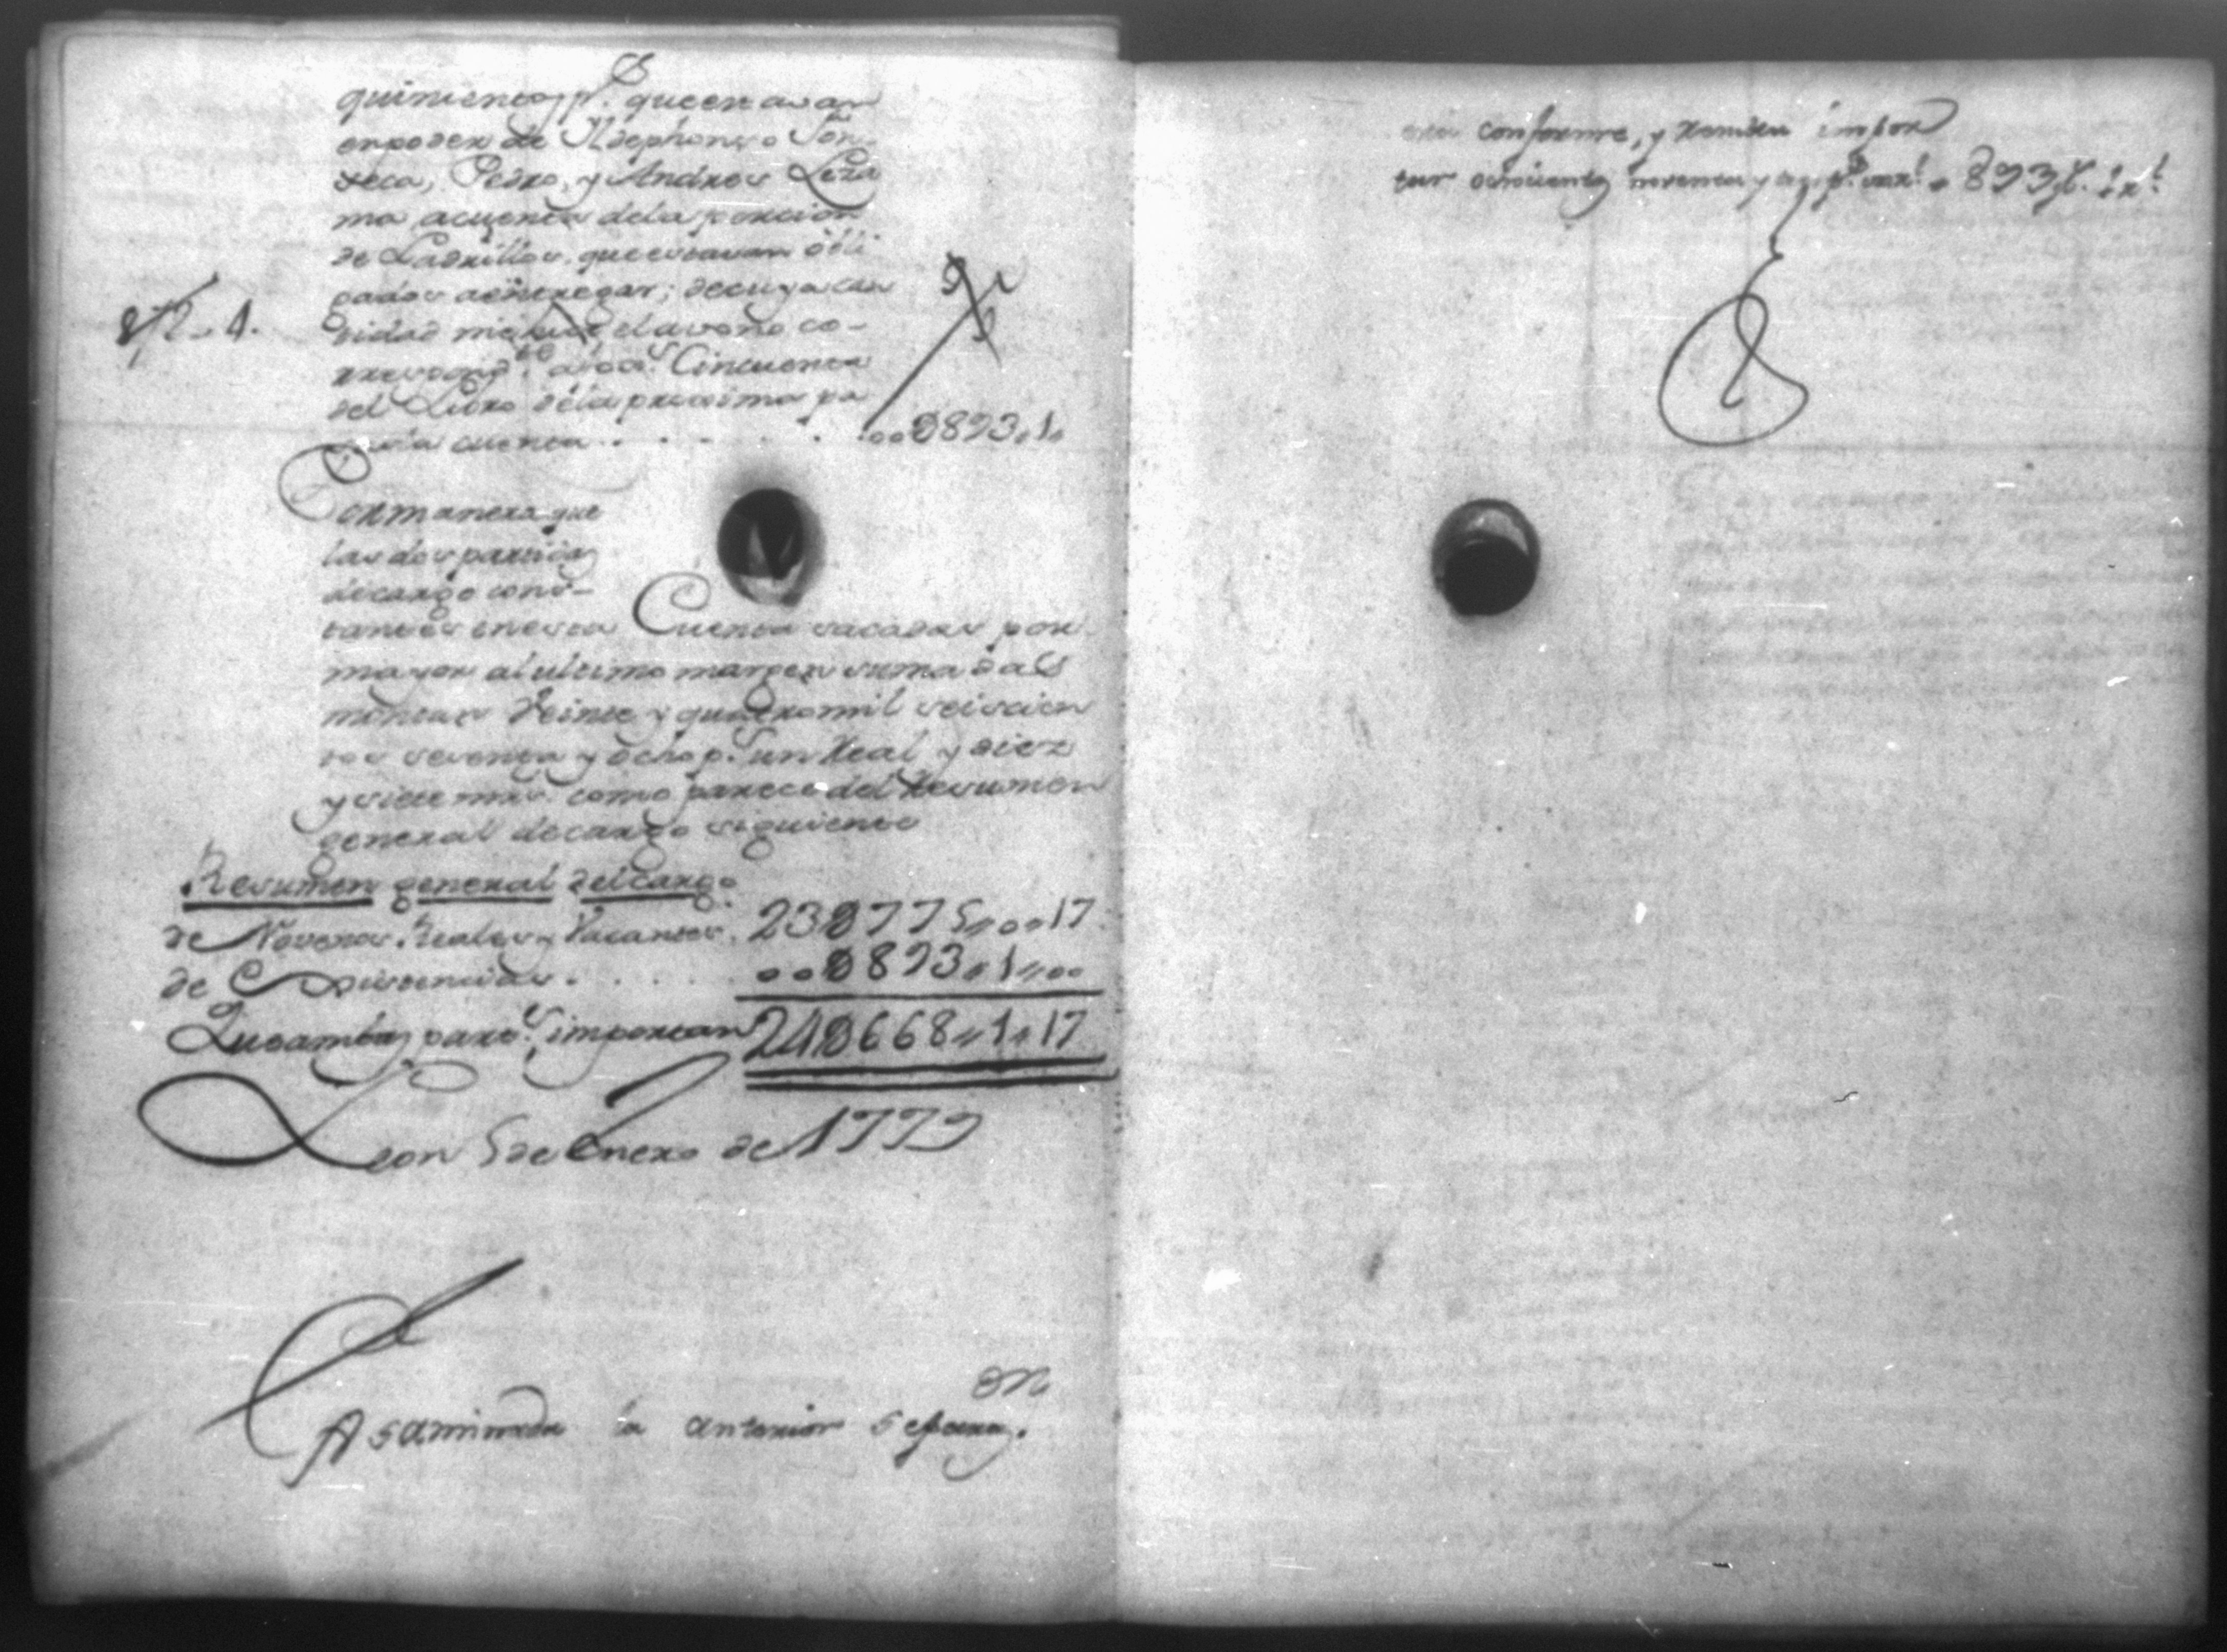 quinientos p.s que estavan
en poder de Ildephonso Fon
seca, Pedro, y Andres Leza
ma acuenta dela porcion
de Ladrillos, que estavan obli
gados aentregar; de cuya can
872-1. tidad
el avono co-
rrespond.te afoxs Cincuenta
del Libro dela proxima pa
sada cuenta . . . . . . ..0893,,1,,
Por manera que
las dos partidas
de cargo cons-
tantes enesta Cuenta sacadas por
mayor al ultimo margen suma da s
montar Veinte y quatro mil seiscien
tos sesenta y ocho p.s un Real y diez
y siete mrs. como parece del Resumen
general de cargo siguiente
Resumen general del cargo
de Novenos Reales y Vacantes. 230775,,0,,17
de Existencias . . . . . ..0893,,1,,00
Que ambas part.s importan 240668,,1,,17
Leon 5 de Enero de 1779
Asaminada la anterior se
conforme, y
tar ochocientos noventa y tres p.s un r.l 893 p. 1 r.l